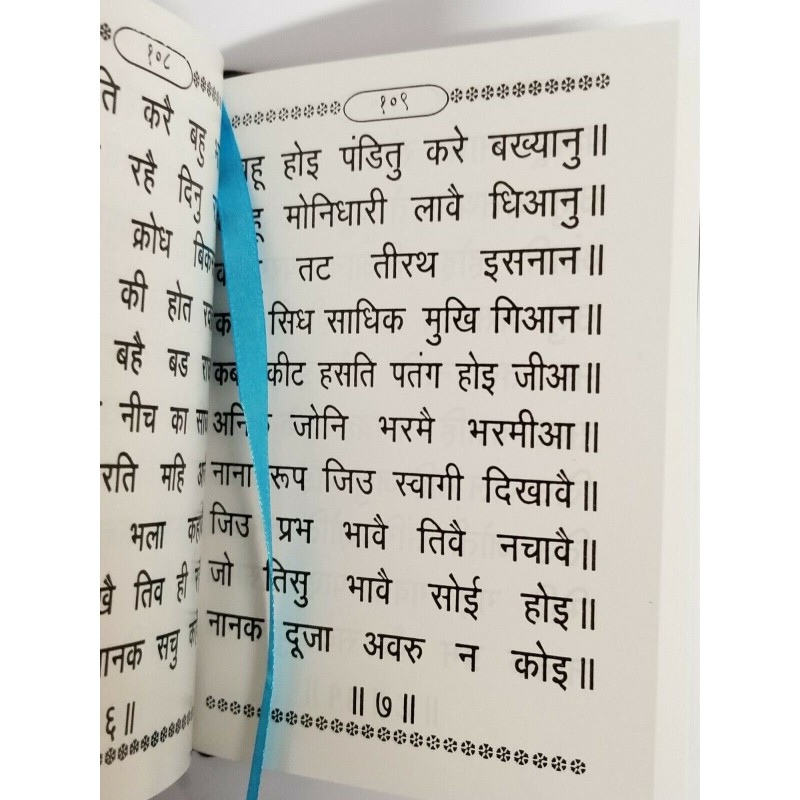 १०८
ति करै बहु
रहै दिनु
क्रोध
की होत
बहै बड
नीच का
महि
भला
तिव ही
सचु
६॥
१०९
होइ पंडितु करे बख्यानु॥
मोनिधारी लावै धिआनु॥
तट तीरथ इसनान॥
सिध साधिक मुखि गिआन॥
कीट हसति पतंग होइ जीआ॥
जोनि भरमै भरमीआ॥
नाना रूप जिउ स्वागी दिखावै॥
जिउ प्रभ भावै तिवै नचावै॥
जो तिसु भावै सोई होइ॥
नानक दूजा अवरु न कोइ॥
॥७॥